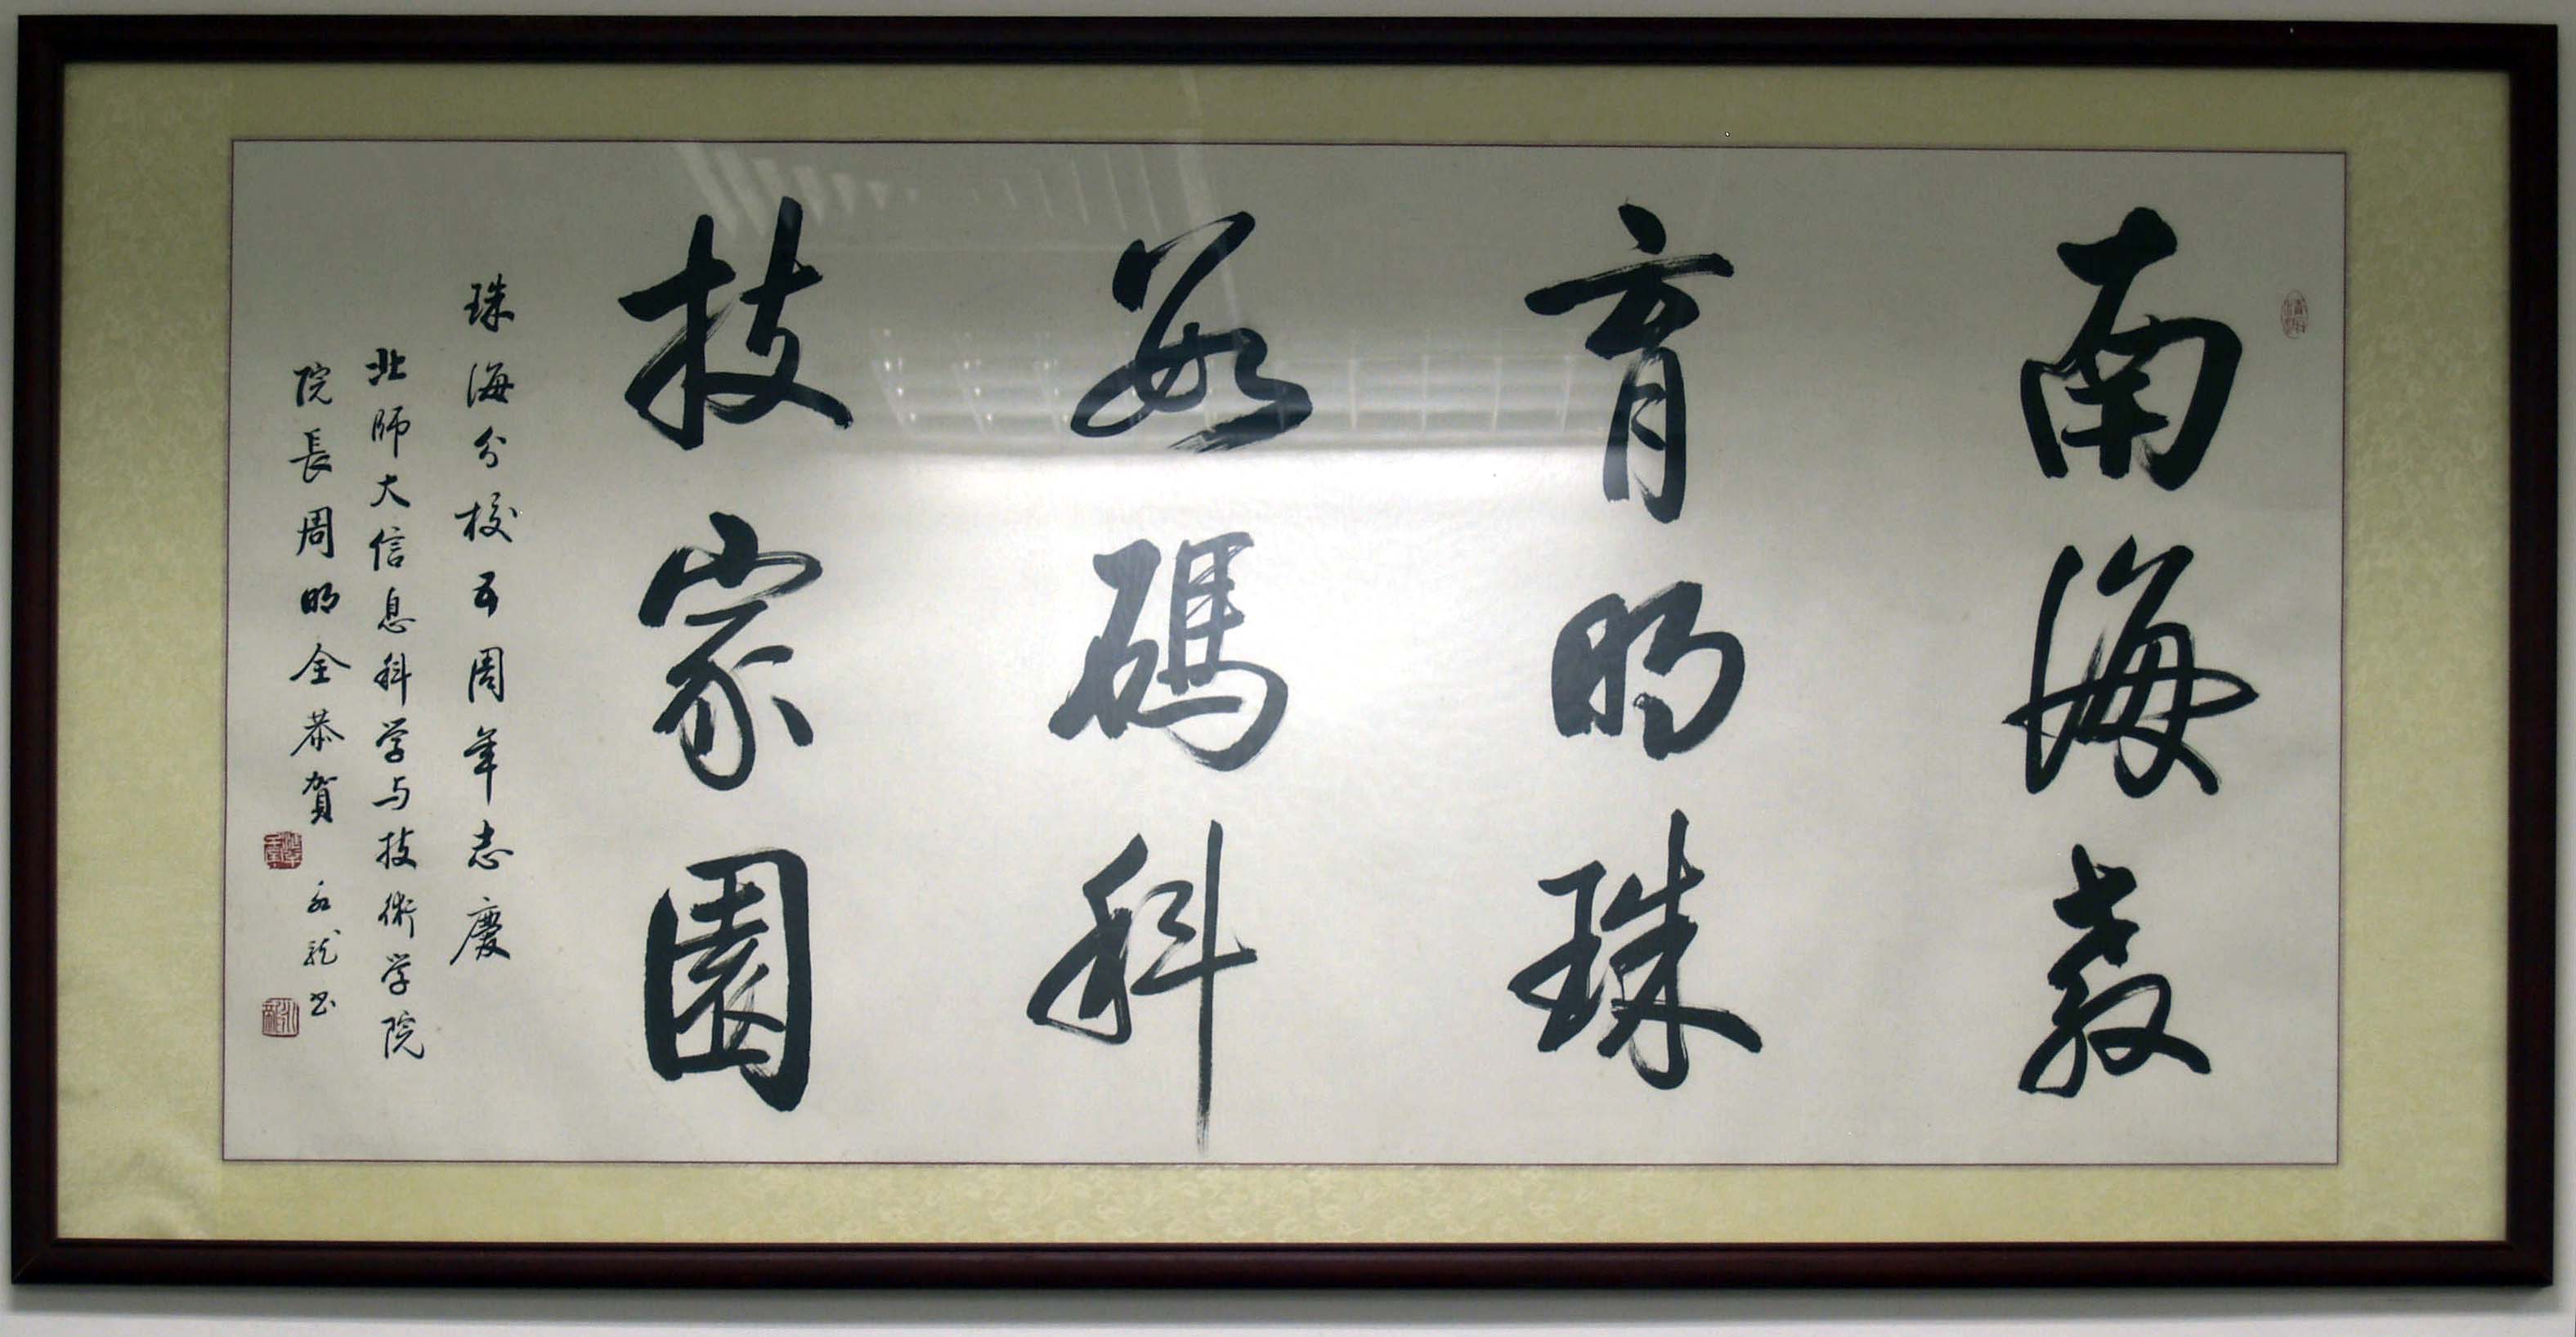 南海教
育明珠
数碼科
技家園
珠海分校五周年志慶
北师大信息科学与技術学院
院長周明全恭賀
永龙书